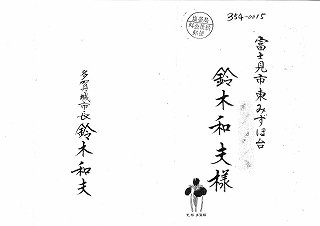 354-0015
富士見市東みずほ台
鈴木和夫様
多賀城市長 鈴木和夫